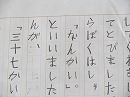 てとびました
らばくはし。
「なんかい。」
といいました
んが、
「三十七かい